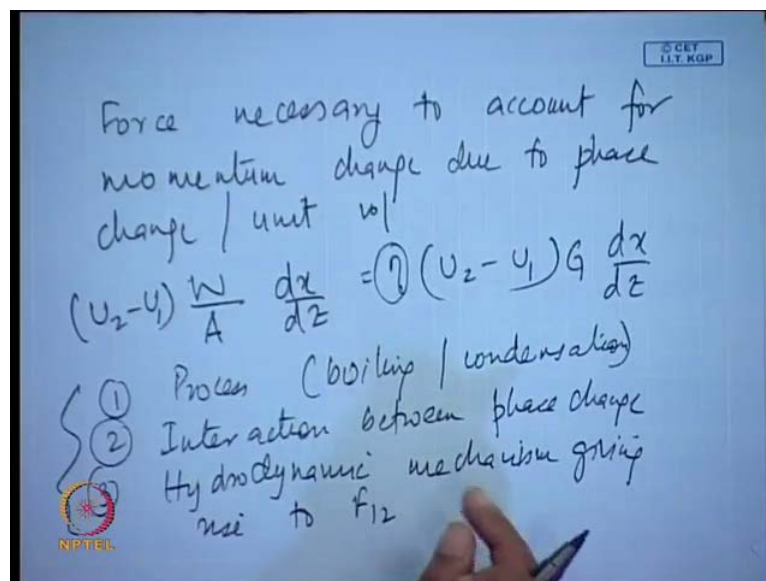 © CET
I.I.T. KGP
Force necessary to account for
momentum change due to phase
change / unit vol
(U₂-U₁) W/A dx/dz = η (U₂-U₁) G dx/dz
① Process (boiling / condensation)
② Interaction between phase change
③ Hydrodynamic mechanism giving
rise to F₁₂
NPTEL